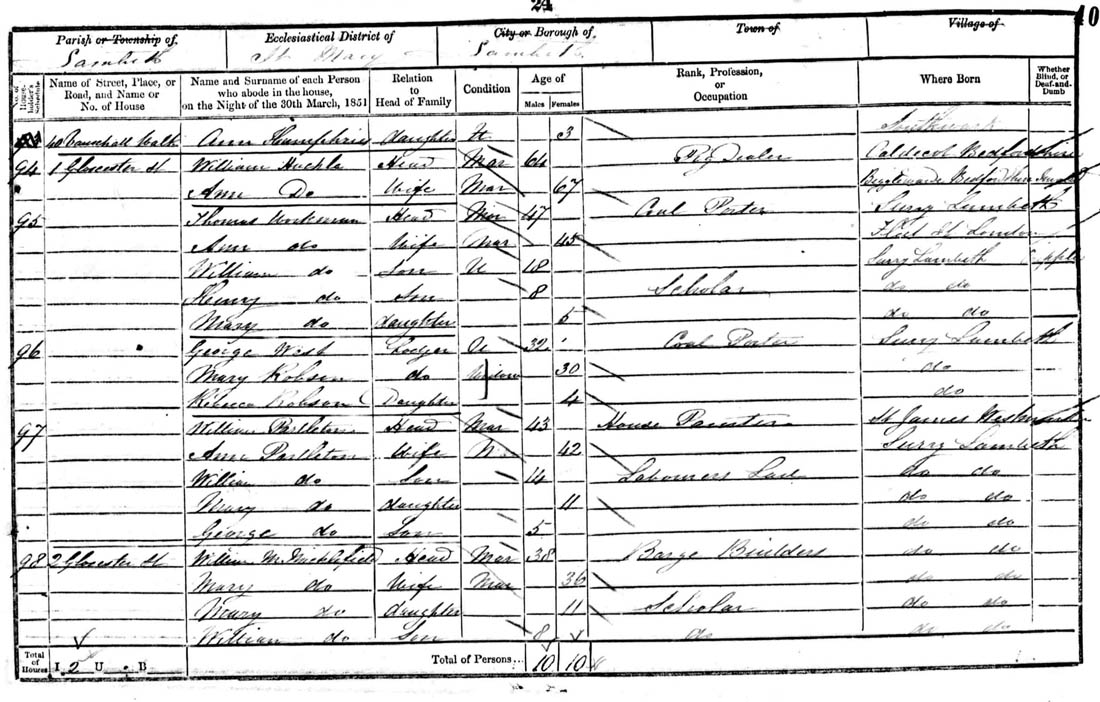 24
40
Parish or Township of. Ecclesiastical District of City or Borough of. Town of Village of
Lambeth St Mary Lambeth
No. of Householder's Schedule Name of Street, Place, or Road, and Name or No. of House Name and Surname of each Person who abode in the house, on the Night of the 30th March, 1851 Relation to Head of Family Condition Age of Males Females Rank, Profession, or Occupation Where Born Whether Blind, or Deaf-and-Dumb
40 Vauxhall Walk Ann Humphries daughter U 3 Southwark
94 1 Glocester St William Head Mar 64 Pig Dealer Caldecot Bedfordshire
Ann Do Wife Mar 67 Bedfordshire
95 Thomas Workman Head Mar 47 Coal Porter Surry Lambeth
Ann do Wife Mar 45 Fleet St London
William do Son U 18 Surry Lambeth
Henry do Son 8 Scholar do do
Mary do daughter 5 do do
96 George West Lodger U 32 Coal Porter Surry Lambeth
Mary Robson do Widow 30 do
Rebecca Robson Daughter 4 do
97 William Head Mar 43 House Painter St James Westminster
Ann Parleton Wife 42 Surry Lambeth
William do Son 14 Labourers Lad do do
Mary do daughter 11 do do
George do Son 5 do do
98 2 Glocester St William Head Mar 38 Barge Builders do do
Mary do Wife Mar 36 do do
Mary do daughter 11 Scholar do do
William do Son 8 do do do
Total of Houses I 2 U B Total of Persons... 10 10